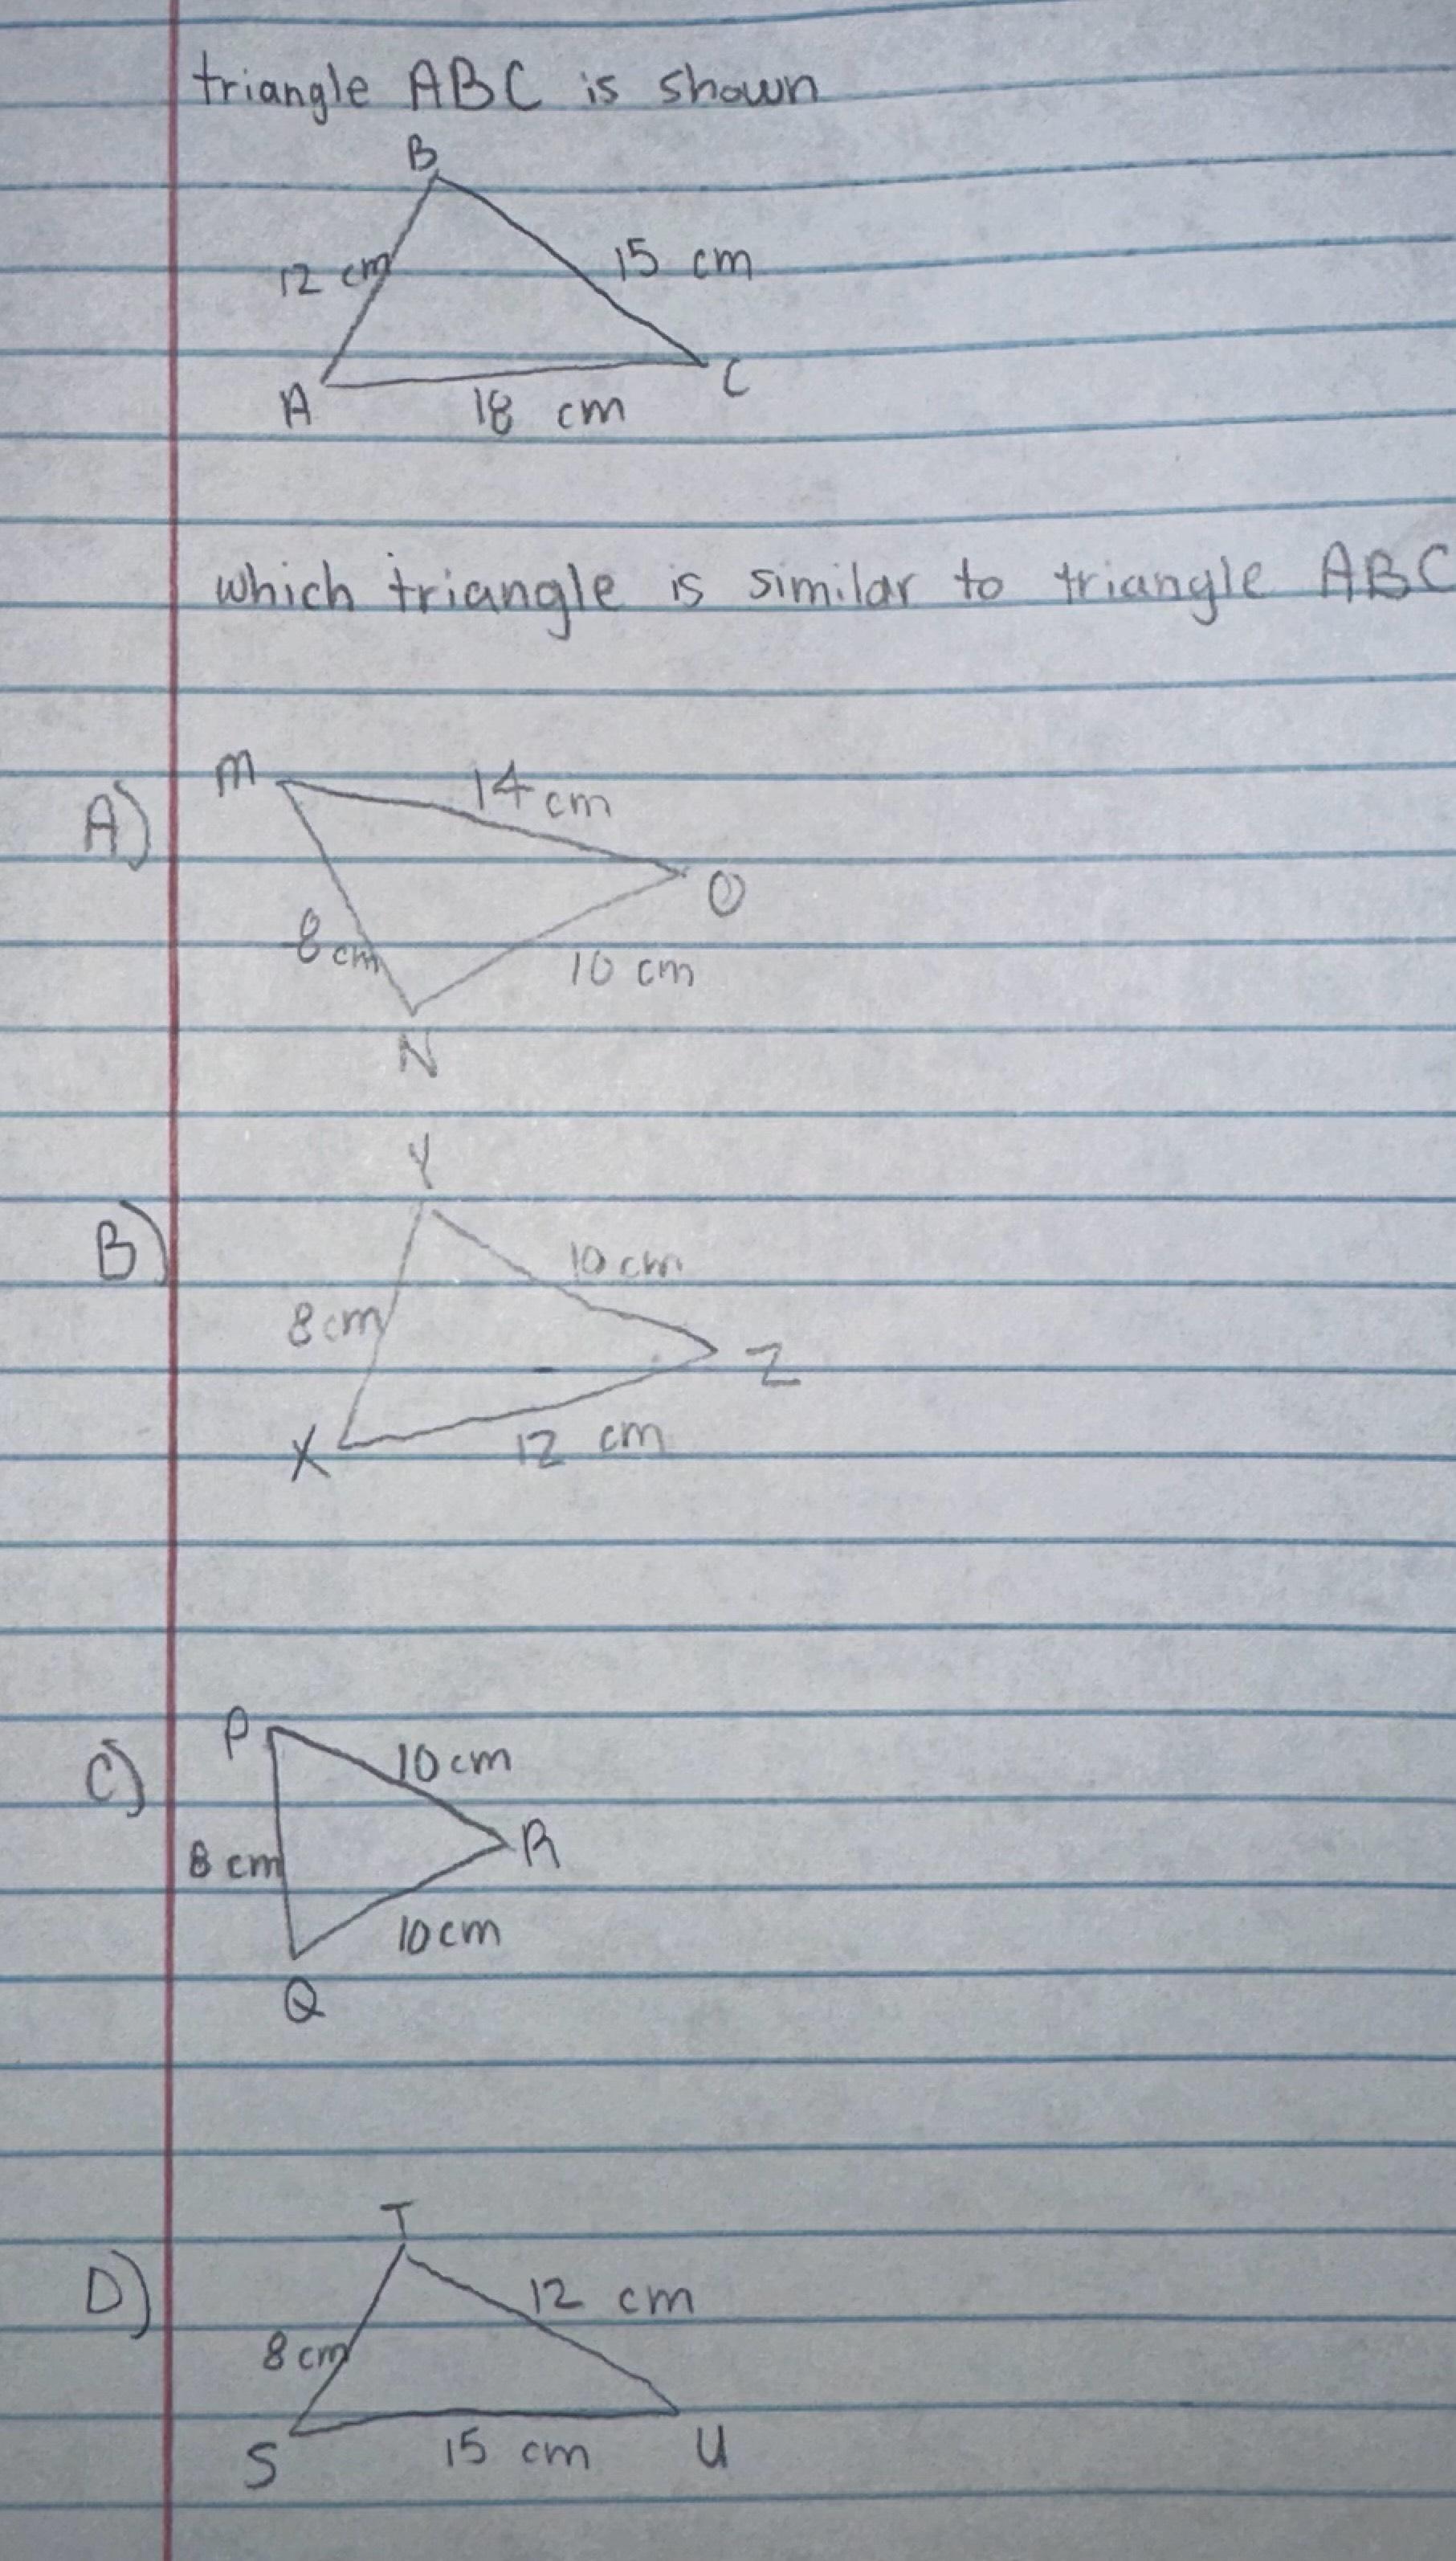 triangle ABC is shown
B
12 cm
15 cm
A
18 cm
C
which triangle is similar to triangle ABC
A)
M
14 cm
O
8 cm
10 cm
N
B)
Y
10 cm
8 cm
Z
X
12 cm
C)
P
10 cm
R
8 cm
10 cm
Q
D)
T
12 cm
8 cm
S
15 cm
U